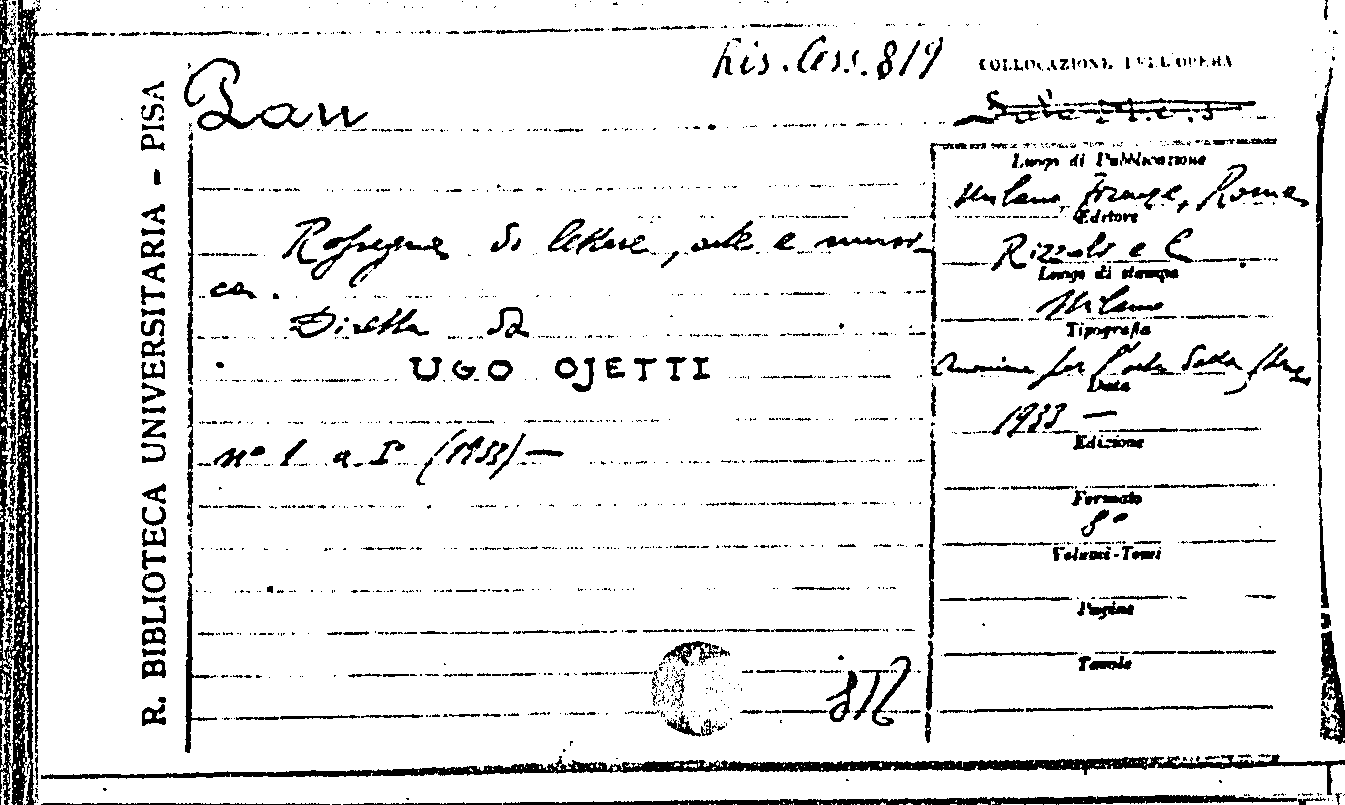 R. BIBLIOTECA UNIVERSITARIA - PISA
Ris. Cess. 819
COLLOCAZIONE DELL'OPERA
Pan
Luogo di Pubblicazione
Milano, Firenze, Roma
Editore
Rassegna di lettere, arte e musi-
Rizzoli e C
ca.
Luogo di stampa
Diretta da
Milano
Tipografia
UGO OJETTI
Anonima per l'arte della
Data
1933 —
nº 1 a. Iº (1933) —
Edizione
Formato
8º
Volumi-Tomi
Pagine
Tavole